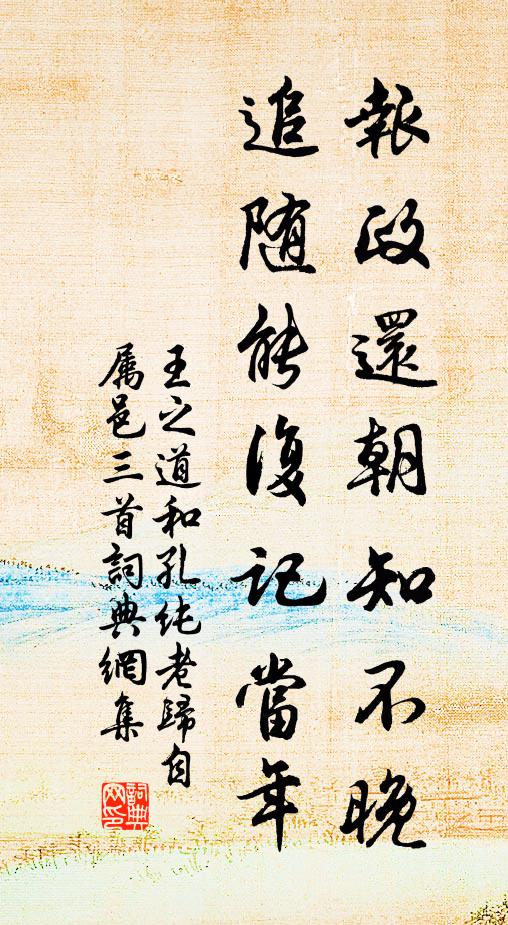 報政還朝知不晚
追随能復記當年
王之道和孔纯老歸自
属邑三首詞典網集
詞典
网印